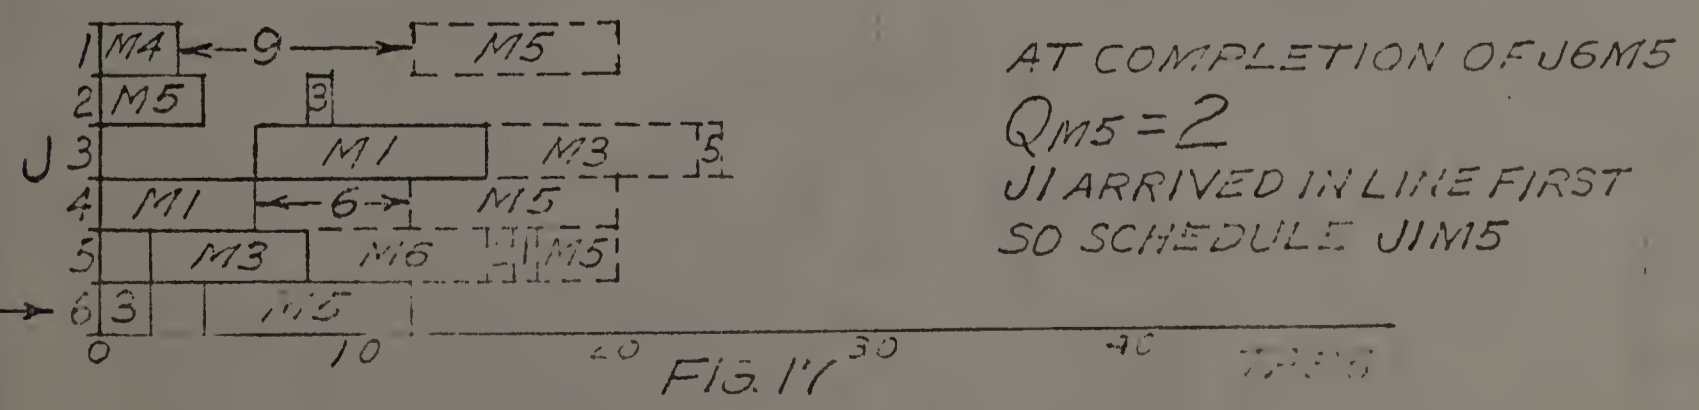 1 M4 9 M5
2 M5 3
J 3 M1 M3 5
4 M1 6 M5
5 M3 M6 1 M5
6 3 M5
0 10 20 30 40
FIG. 17
AT COMPLETION OF J6M5
QM5 = 2
J1 ARRIVED IN LINE FIRST
SO SCHEDULE J1M5